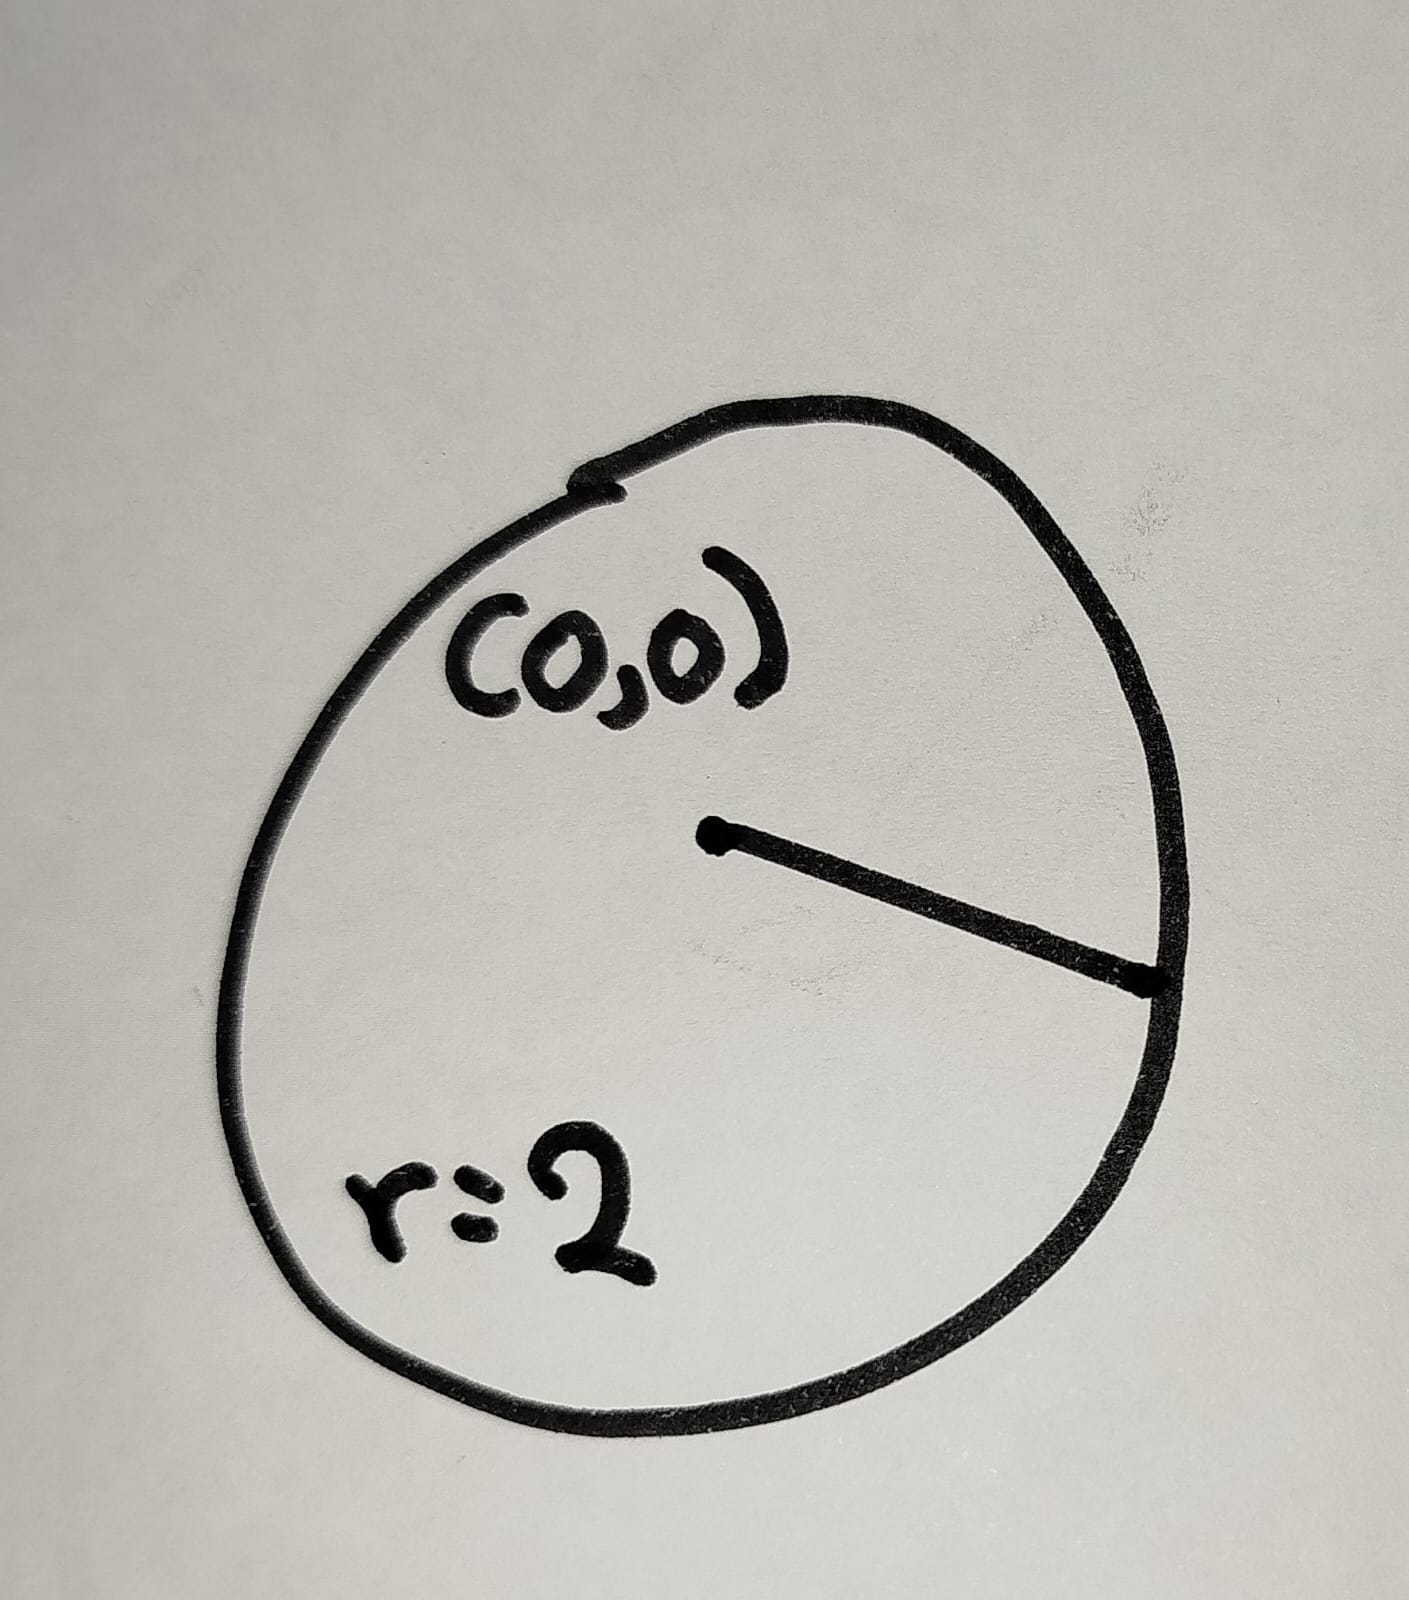 (0,0)
r=2